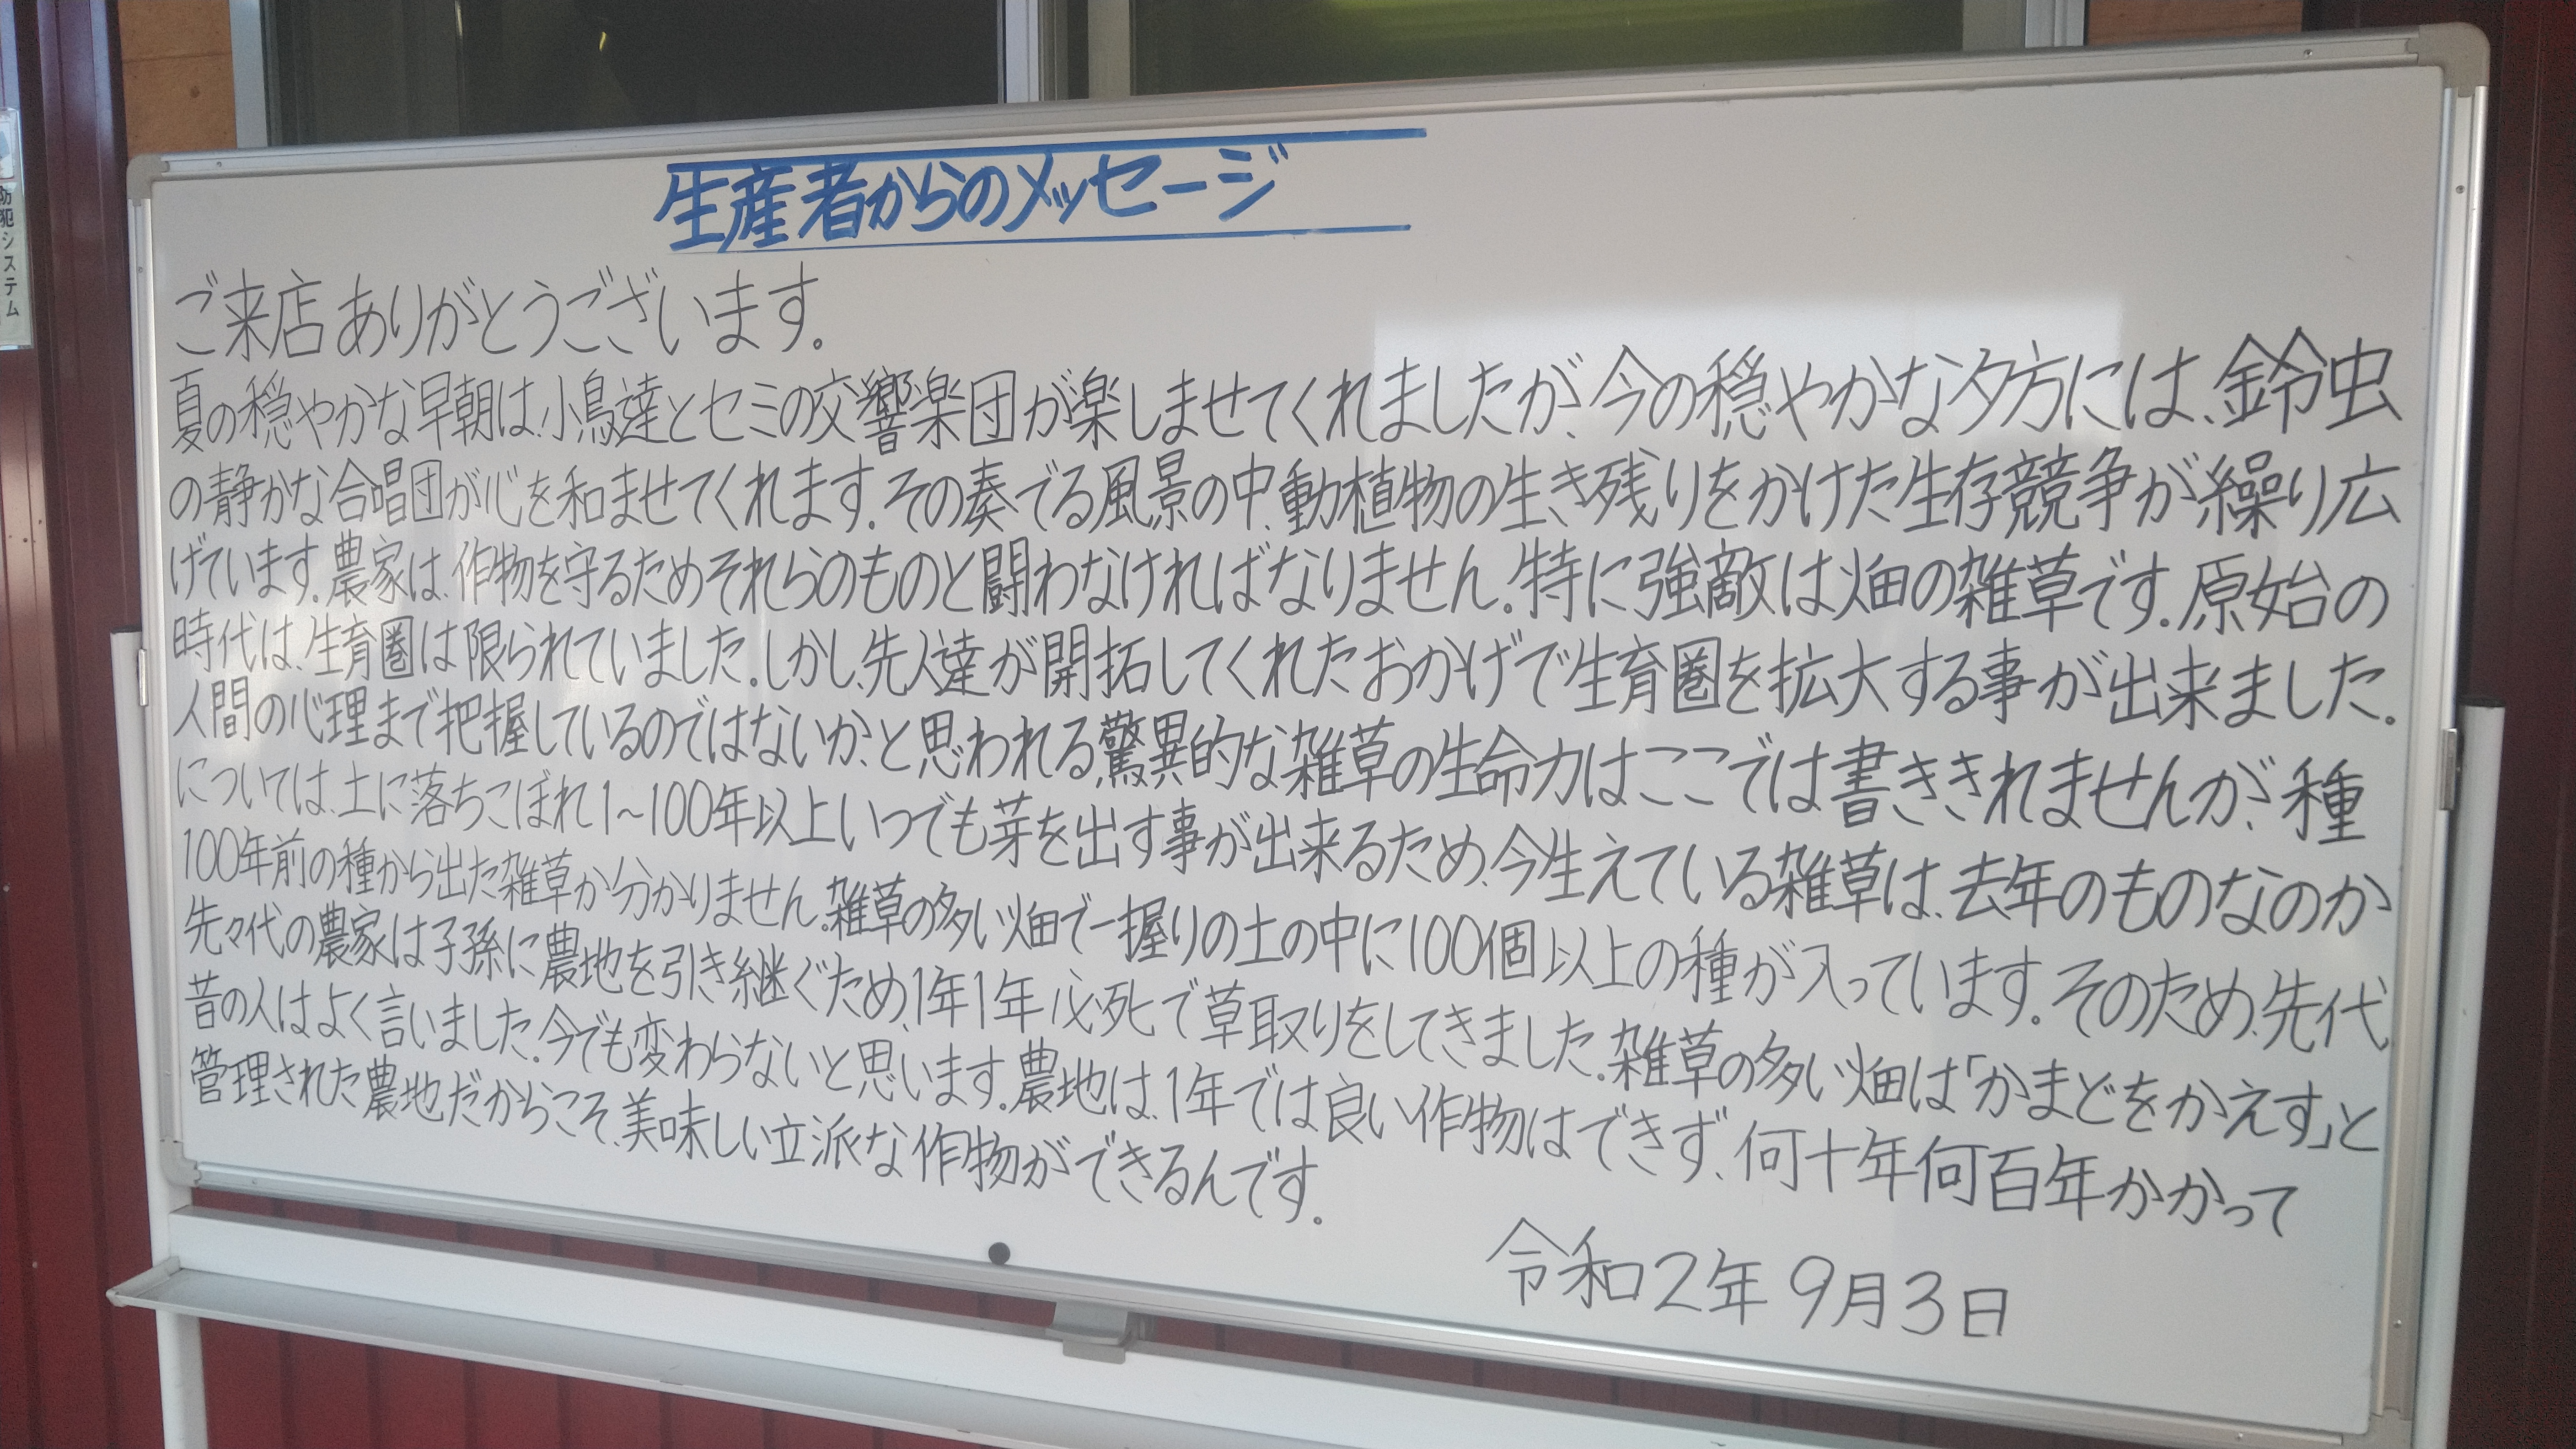 生産者からのメッセージ
ご来店ありがとうございます。
夏の穏やかな早朝は、小鳥達とセミの交響楽団が楽しませてくれましたが、今の穏やかな夕方には、鈴虫
の静かな合唱団が心を和ませてくれます。その奏でる風景の中、動植物の生き残りをかけた生存競争が繰り広
げています。農家は、作物を守るためそれらのものと闘わなければなりません。特に強敵は畑の雑草です。原始の
時代は、生育圏は限られていました。しかし、先人達が開拓してくれたおかげで生育圏を拡大する事が出来ました。
人間の心理まで把握しているのではないか、と思われる、驚異的な雑草の生命力はここでは書ききれませんが、種
については、土に落ちこぼれ1~100年以上いつでも芽を出す事が出来るため、今生えている雑草は、去年のものなのか
100年前の種から出た雑草か分かりません。雑草の多い畑で一握りの土の中に100個以上の種が入っています。そのため、先代
先々代の農家は子孫に農地を引き継ぐため、1年1年必死で草取りをしてきました。雑草の多い畑は「かまどをかえす」と
昔の人はよく言いました。今でも変わらないと思います。農地は、1年では良い作物はできず、何十年何百年かかって
管理された農地だからこそ、美味しい立派な作物ができるんです。
令和2年9月3日
防犯システム